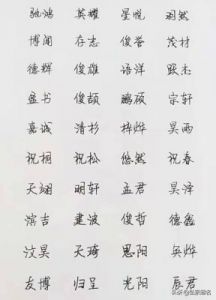 驰鸿 英耀 星悦 羽然
博闻 存志 俊誉 茂材
德辉 俊雄 语洋 跃志
盛书 俊颉 鹏硕 宗轩
嘉诚 清杉 梓烨 昊雨
祝桐 祝松 悠然 祝春
天翊 明轩 孟君 昊泽
滨吉 建波 俊哲 德鑫
汶昊 天琦 思阳 奂烨
友博 归呈 光阳 辰君